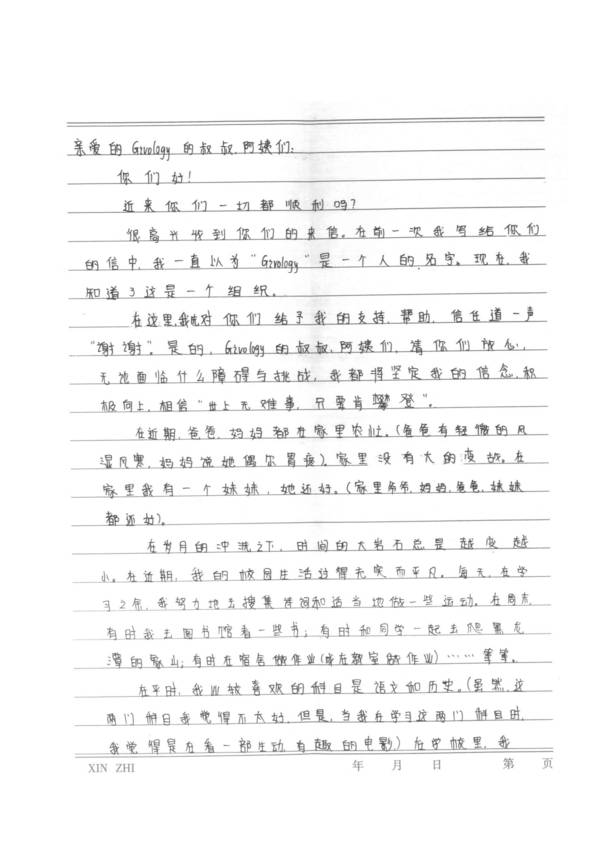 亲爱的Givology的叔叔、阿姨们:
你们好!
近来你们一切都顺利吗?
很高兴收到你们的来信。在前一次我写给你们
的信中,我一直以为“Givology”是一个人的名字。现在,我
知道了这是一个组织。
在这里,我对你们给予我的支持、帮助、信任道一声
“谢谢”。是的,Givology的叔叔、阿姨们,请你们放心,
无论面临什么障碍与挑战,我都将坚定我的信念,积
极向上,相信“世上无难事,只要肯攀登”。
在近期,爸爸、妈妈都在家里农忙。(爸爸有轻微的风
湿风寒,妈妈说她偶尔胃疼)。家里没有大的变故。在
家里我有一个妹妹,她还好。(家里爷爷、妈妈、爸爸、妹妹
都还好)。
在岁月的冲洗之下,时间的大岩石总是越变越
小。在近期,我的校园生活过得充实而平凡。每天,在学
习之余,我努力地去搜集诗词和适当地做一些运动。在周末,
有时我去图书馆看一些书;有时和同学一起去爬黑龙
潭的象山;有时在宿舍做作业(或在教室做作业)……等等。
在平时,我比较喜欢的科目是语文和历史。(虽然,这
两门科目我觉得不太好,但是,当我在学习这两门科目时,
我觉得是在看一部生动、有趣的电影)在学校里,我
XIN ZHI 年 月 日 第 页